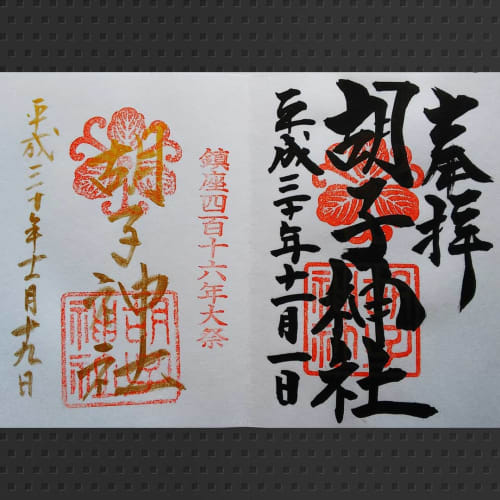 奉拝
胡子神社
平成三十年十一月一日
鎮座四百十六年大祭
胡子神社
平成三十年十一月十九日